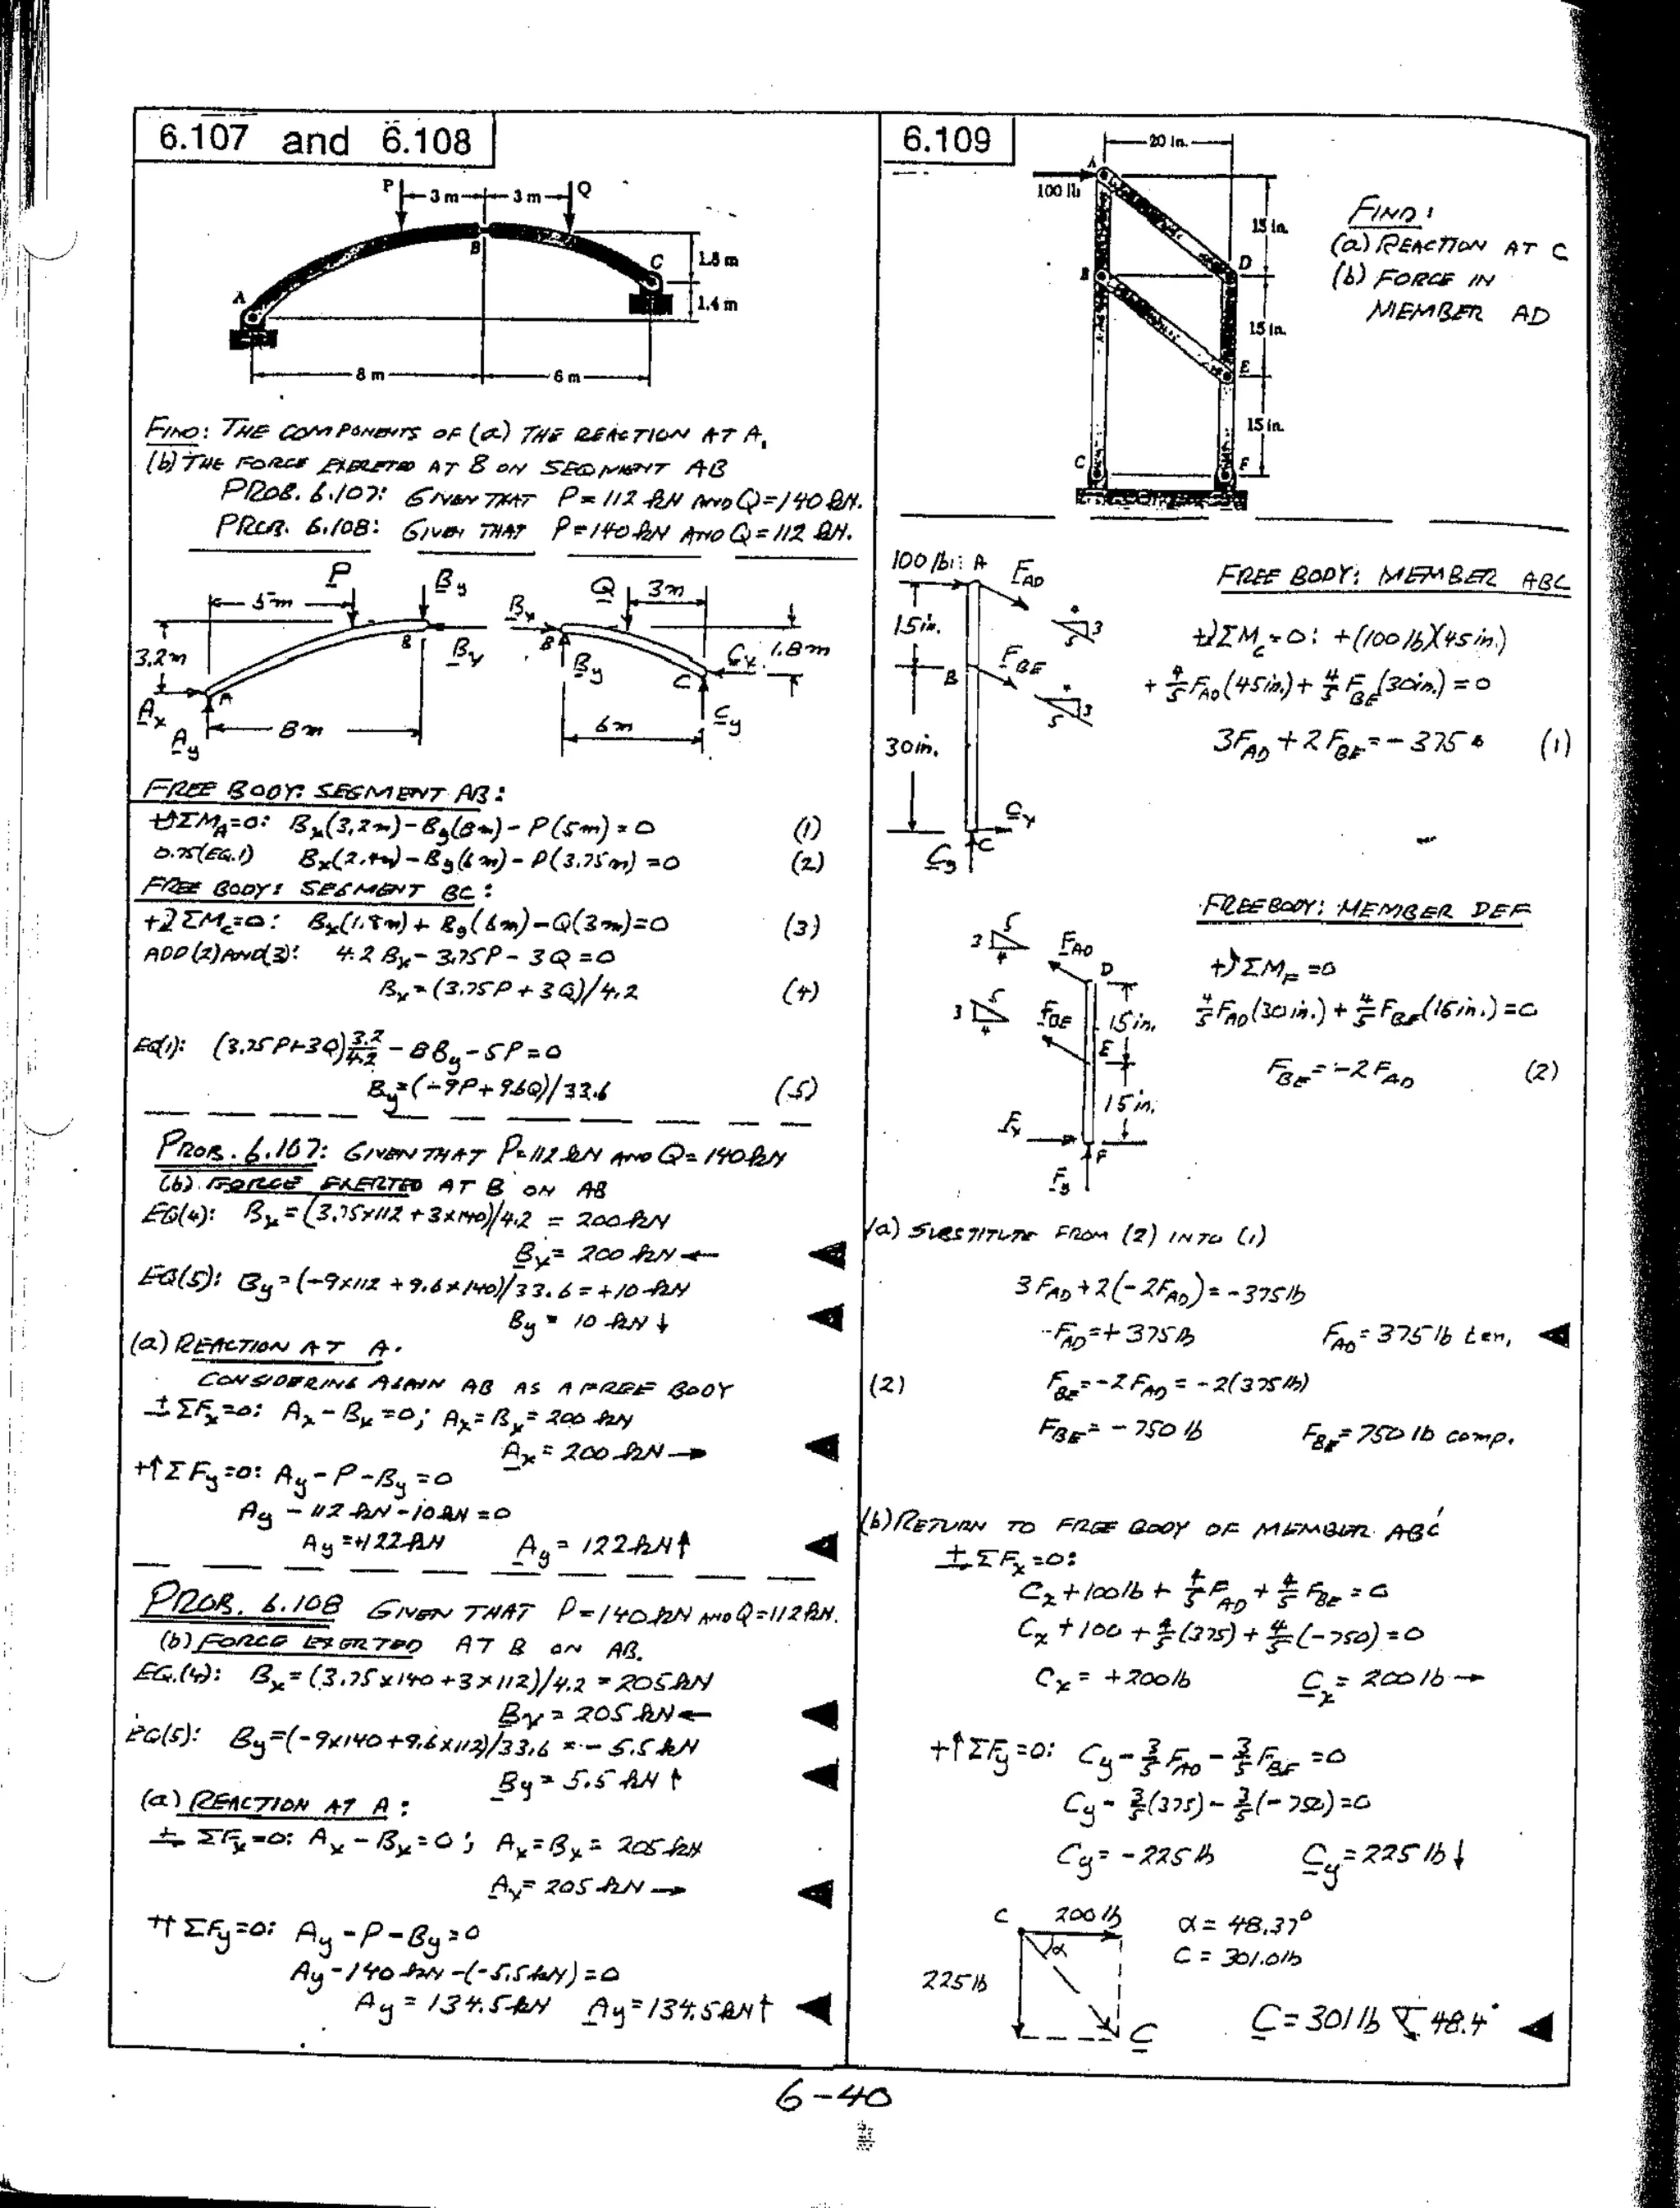 6.107 and 6.108
P
3 m
3 m
Q
B
C
1.8 m
A
1.4 m
8 m
6 m
FIND: THE COMPONENTS OF (a) THE REACTION AT A,
(b) THE FORCE EXERETED AT B ON SEGMENT AB
PROB. 6.107: GIVEN THAT P = 112 kN AND Q = 140 kN.
PROB. 6.108: GIVEN THAT P = 140 kN AND Q = 112 kN.
P
By
5m
Bx
Q
3m
3.2m
B
Bx
B
By
Cx
1.8m
A
C
Ax
8m
6m
Cy
Ay
FREE BODY: SEGMENT AB:
+↺ΣMA=0: Bx(3.2m) - By(8m) - P(5m) = 0 (1)
0.75(EQ.1) Bx(2.4m) - By(6m) - P(3.75m) = 0 (2)
FREE BODY: SEGMENT BC:
+↻ΣMC=0: Bx(1.8m) + By(6m) - Q(3m) = 0 (3)
ADD (2) AND (3): 4.2 Bx - 3.75P - 3Q = 0
Bx = (3.75P + 3Q)/4.2 (4)
EQ(1): (3.75P+3Q) 3.2/4.2 - 8By - 5P = 0
By = (-9P + 9.6Q)/33.6 (5)
PROB. 6.107: GIVEN THAT P=112 kN AND Q=140 kN
(b) FORCE EXERTED AT B ON AB
EQ(4): Bx = (3.75×112 + 3×140)/4.2 = 200 kN
Bx = 200 kN ←
EQ(5): By = (-9×112 + 9.6×140)/33.6 = +10 kN
By = 10 kN ↓
(a) REACTION AT A.
CONSIDERING AGAIN AB AS A FREE BODY
+→ΣFx=0: Ax - Bx = 0; Ax = Bx = 200 kN
Ax = 200 kN →
+↑ΣFy=0: Ay - P - By = 0
Ay - 112 kN - 10 kN = 0
Ay = +122 kN Ay = 122 kN ↑
PROB. 6.108 GIVEN THAT P=140 kN AND Q=112 kN.
(b) FORCE EXERTED AT B ON AB.
EQ.(4): Bx = (3.75×140 + 3×112)/4.2 = 205 kN
Bx = 205 kN ←
EQ(5): By = (-9×140 + 9.6×112)/33.6 = -5.5 kN
By = 5.5 kN ↑
(a) REACTION AT A:
+→ΣFx=0: Ax - Bx = 0; Ax = Bx = 205 kN
Ax = 205 kN →
+↑ΣFy=0: Ay - P - By = 0
Ay - 140 kN - (-5.5 kN) = 0
Ay = 134.5 kN Ay = 134.5 kN ↑
6.109
20 in.
A
100 lb
15 in.
B
D
15 in.
E
15 in.
C
F
FIND:
(a) REACTION AT C
(b) FORCE IN
MEMBER AD
100 lb A FAD
15in.
4
5 3
B FBE
4
5 3
30in.
Cx
Cy C
FREE BODY: MEMBER ABC
+↻ΣMC=0: +(100 lb)(45 in.)
+ 4/5 FAD(45in) + 4/5 FBE(30in.) = 0
3FAD + 2FBE = -375 (1)
FREE BODY: MEMBER DEF
5
3
4
FAD
D
5
3
4
FBE
15in.
E
15in.
Fx
F
Fy
+↻ΣMF=0
4/5 FAD(30in.) + 4/5 FBE(15in.) = 0
FBE = -2FAD (2)
(a) SUBSTITUTE FROM (2) INTO (1)
3FAD + 2(-2FAD) = -375 lb
-FAD = + 375 lb FAD = 375 lb ten.
(2) FBE = -2FAD = -2(375 lb)
FBE = -750 lb FBE = 750 lb comp.
(b) RETURN TO FREE BODY OF MEMBER ABC
+→ΣFx=0:
Cx + 100lb + 4/5 FAD + 4/5 FBE = 0
Cx + 100 + 4/5(375) + 4/5(-750) = 0
Cx = +200lb Cx = 200 lb →
+↑ΣFy=0: Cy - 3/5 FAD - 3/5 FBE = 0
Cy - 3/5(375) - 3/5(-750) = 0
Cy = -225 lb Cy = 225 lb ↓
C 200 lb
α
225 lb
C
α = 48.37°
C = 301.0lb
C = 301 lb 48.4°
6-40